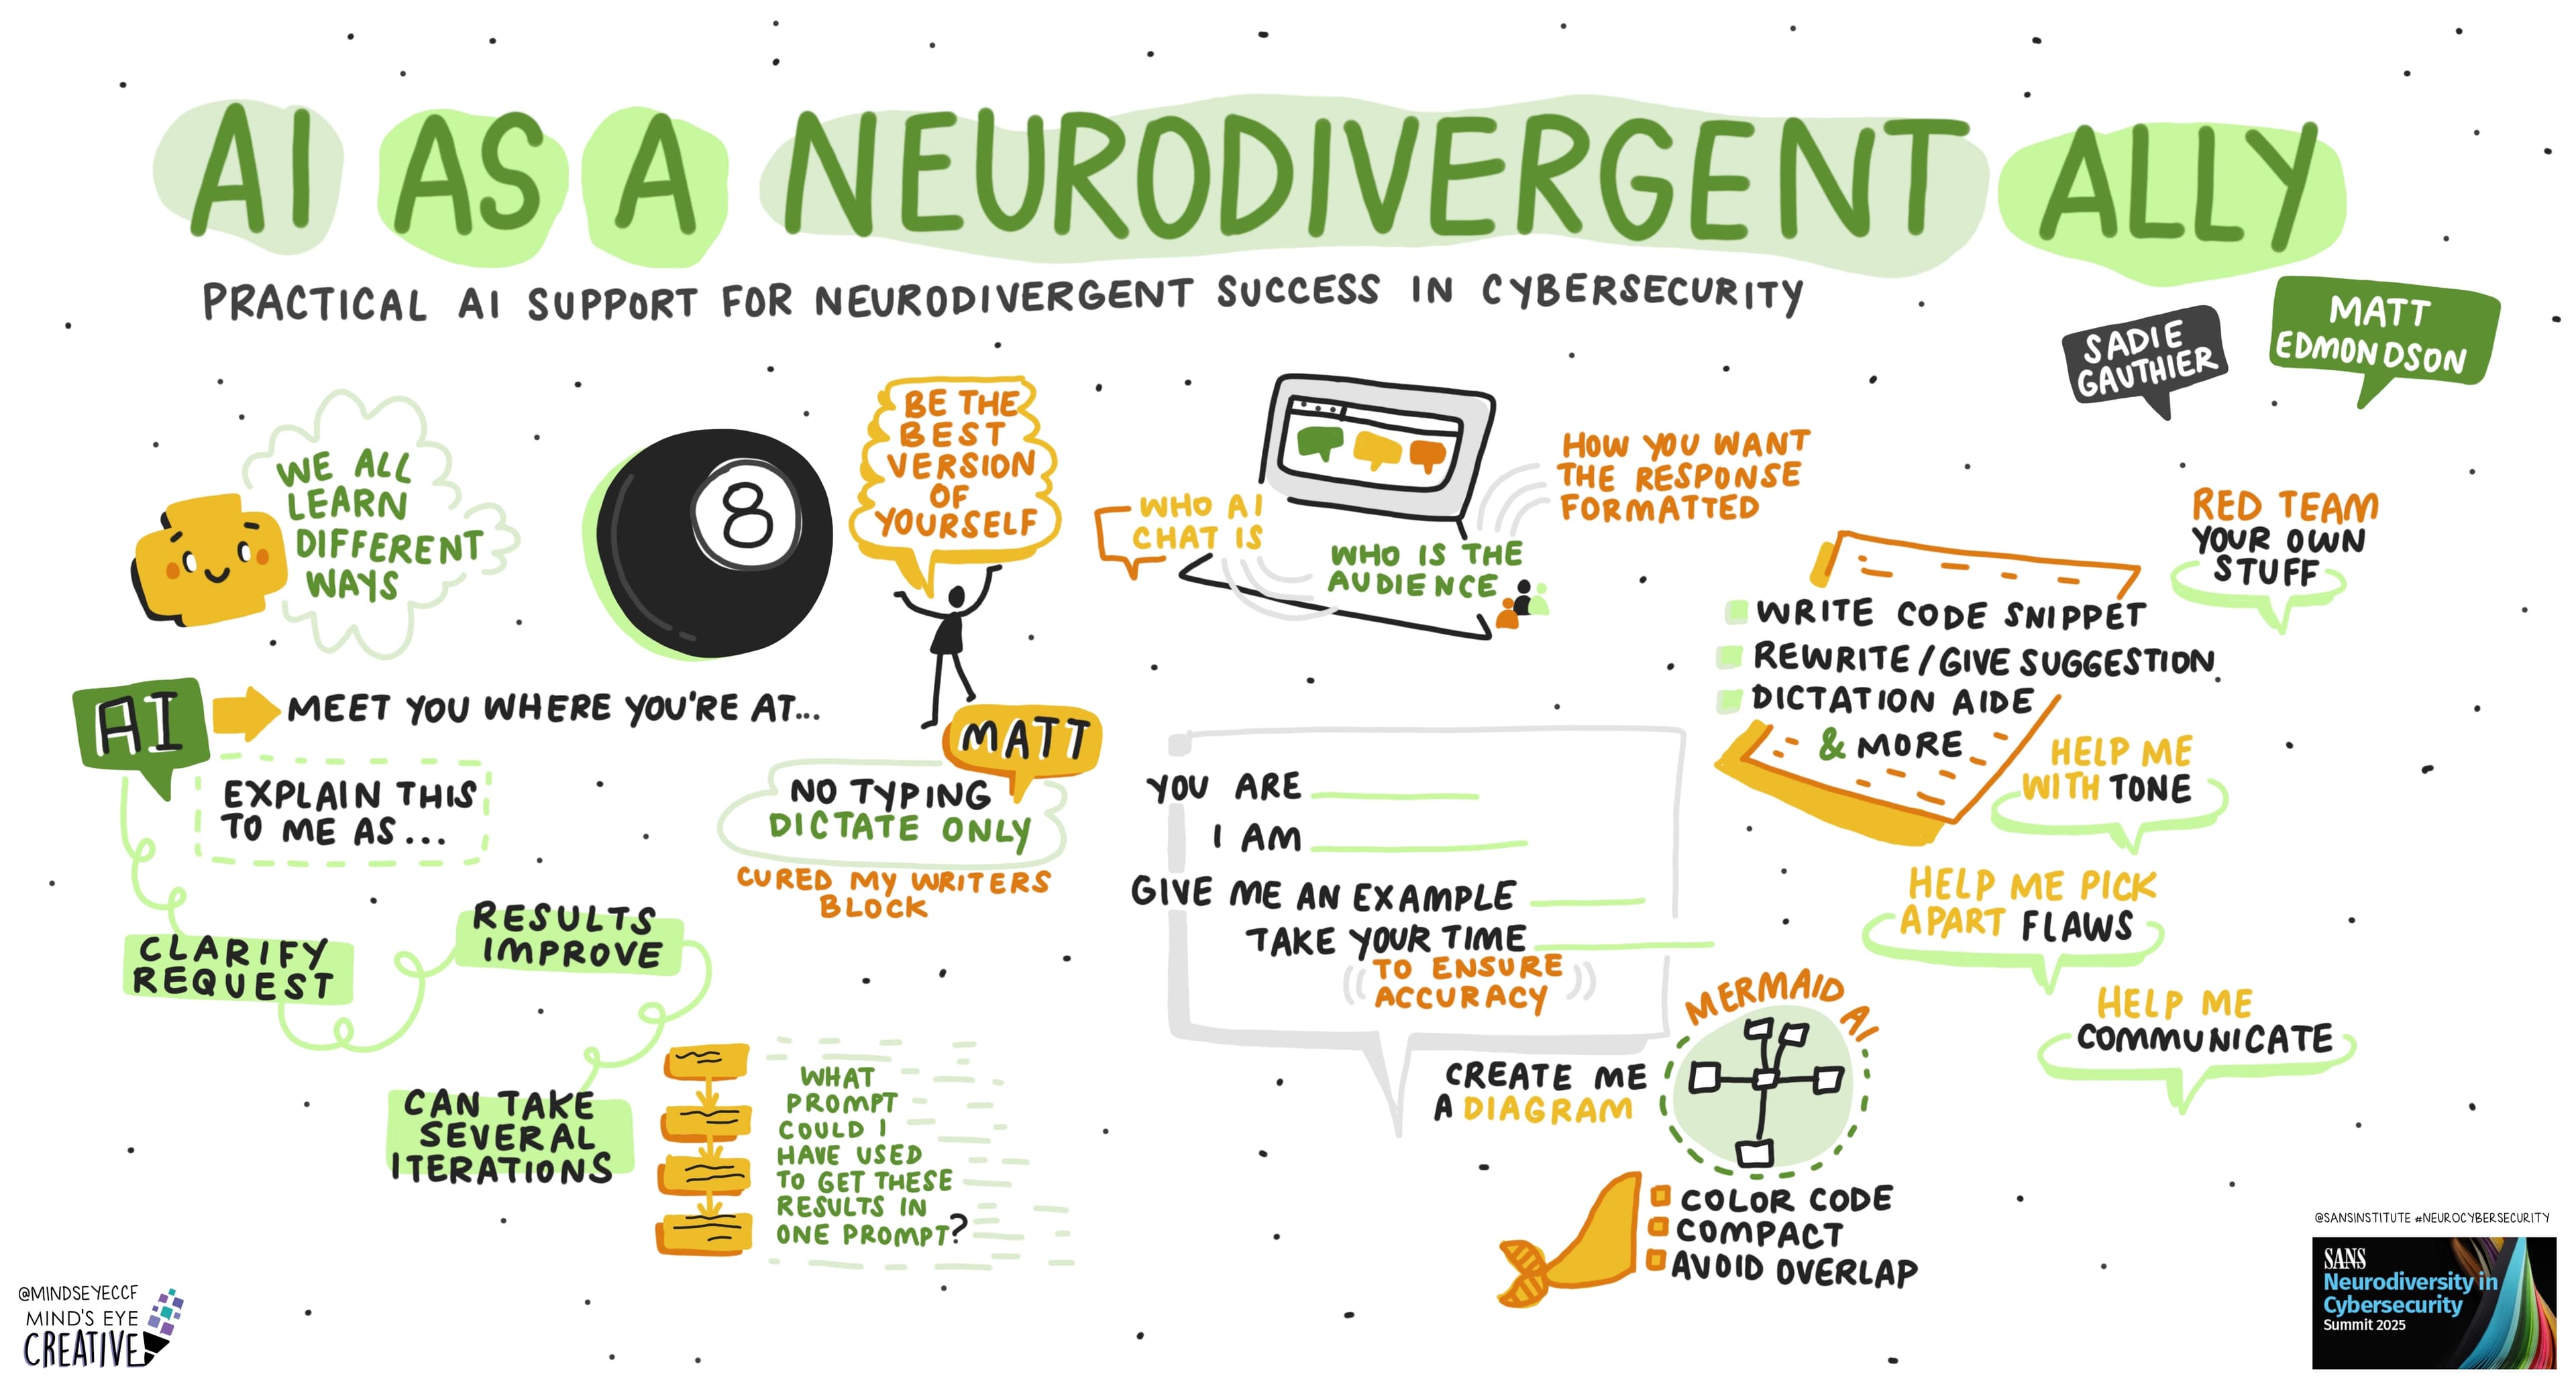 AI AS A NEURODIVERGENT ALLY
PRACTICAL AI SUPPORT FOR NEURODIVERGENT SUCCESS IN CYBERSECURITY
SADIE
GAUTHIER
MATT
EDMONDSON
WE ALL
LEARN
DIFFERENT
WAYS
8
BE THE
BEST
VERSION
OF
YOURSELF
AI
MEET YOU WHERE YOU'RE AT...
EXPLAIN THIS
TO ME AS...
CLARIFY
REQUEST
RESULTS
IMPROVE
CAN TAKE
SEVERAL
ITERATIONS
MATT
NO TYPING
DICTATE ONLY
CURED MY WRITERS
BLOCK
WHAT
PROMPT
COULD I
HAVE USED
TO GET THESE
RESULTS IN
ONE PROMPT?
WHO AI
CHAT IS
WHO IS THE
AUDIENCE
HOW YOU WANT
THE RESPONSE
FORMATTED
YOU ARE
I AM
GIVE ME AN EXAMPLE
TAKE YOUR TIME
TO ENSURE
ACCURACY
CREATE ME
A DIAGRAM
MERMAID AI
COLOR CODE
COMPACT
AVOID OVERLAP
WRITE CODE SNIPPET
REWRITE/GIVE SUGGESTION
DICTATION AIDE
& MORE
RED TEAM
YOUR OWN
STUFF
HELP ME
WITH TONE
HELP ME PICK
APART FLAWS
HELP ME
COMMUNICATE
@MINDSEYECCF
MIND'S EYE
CREATIVE
@SANSINSTITUTE #NEUROCYBERSECURITY
SANS
Neurodiversity in
Cybersecurity
Summit 2025